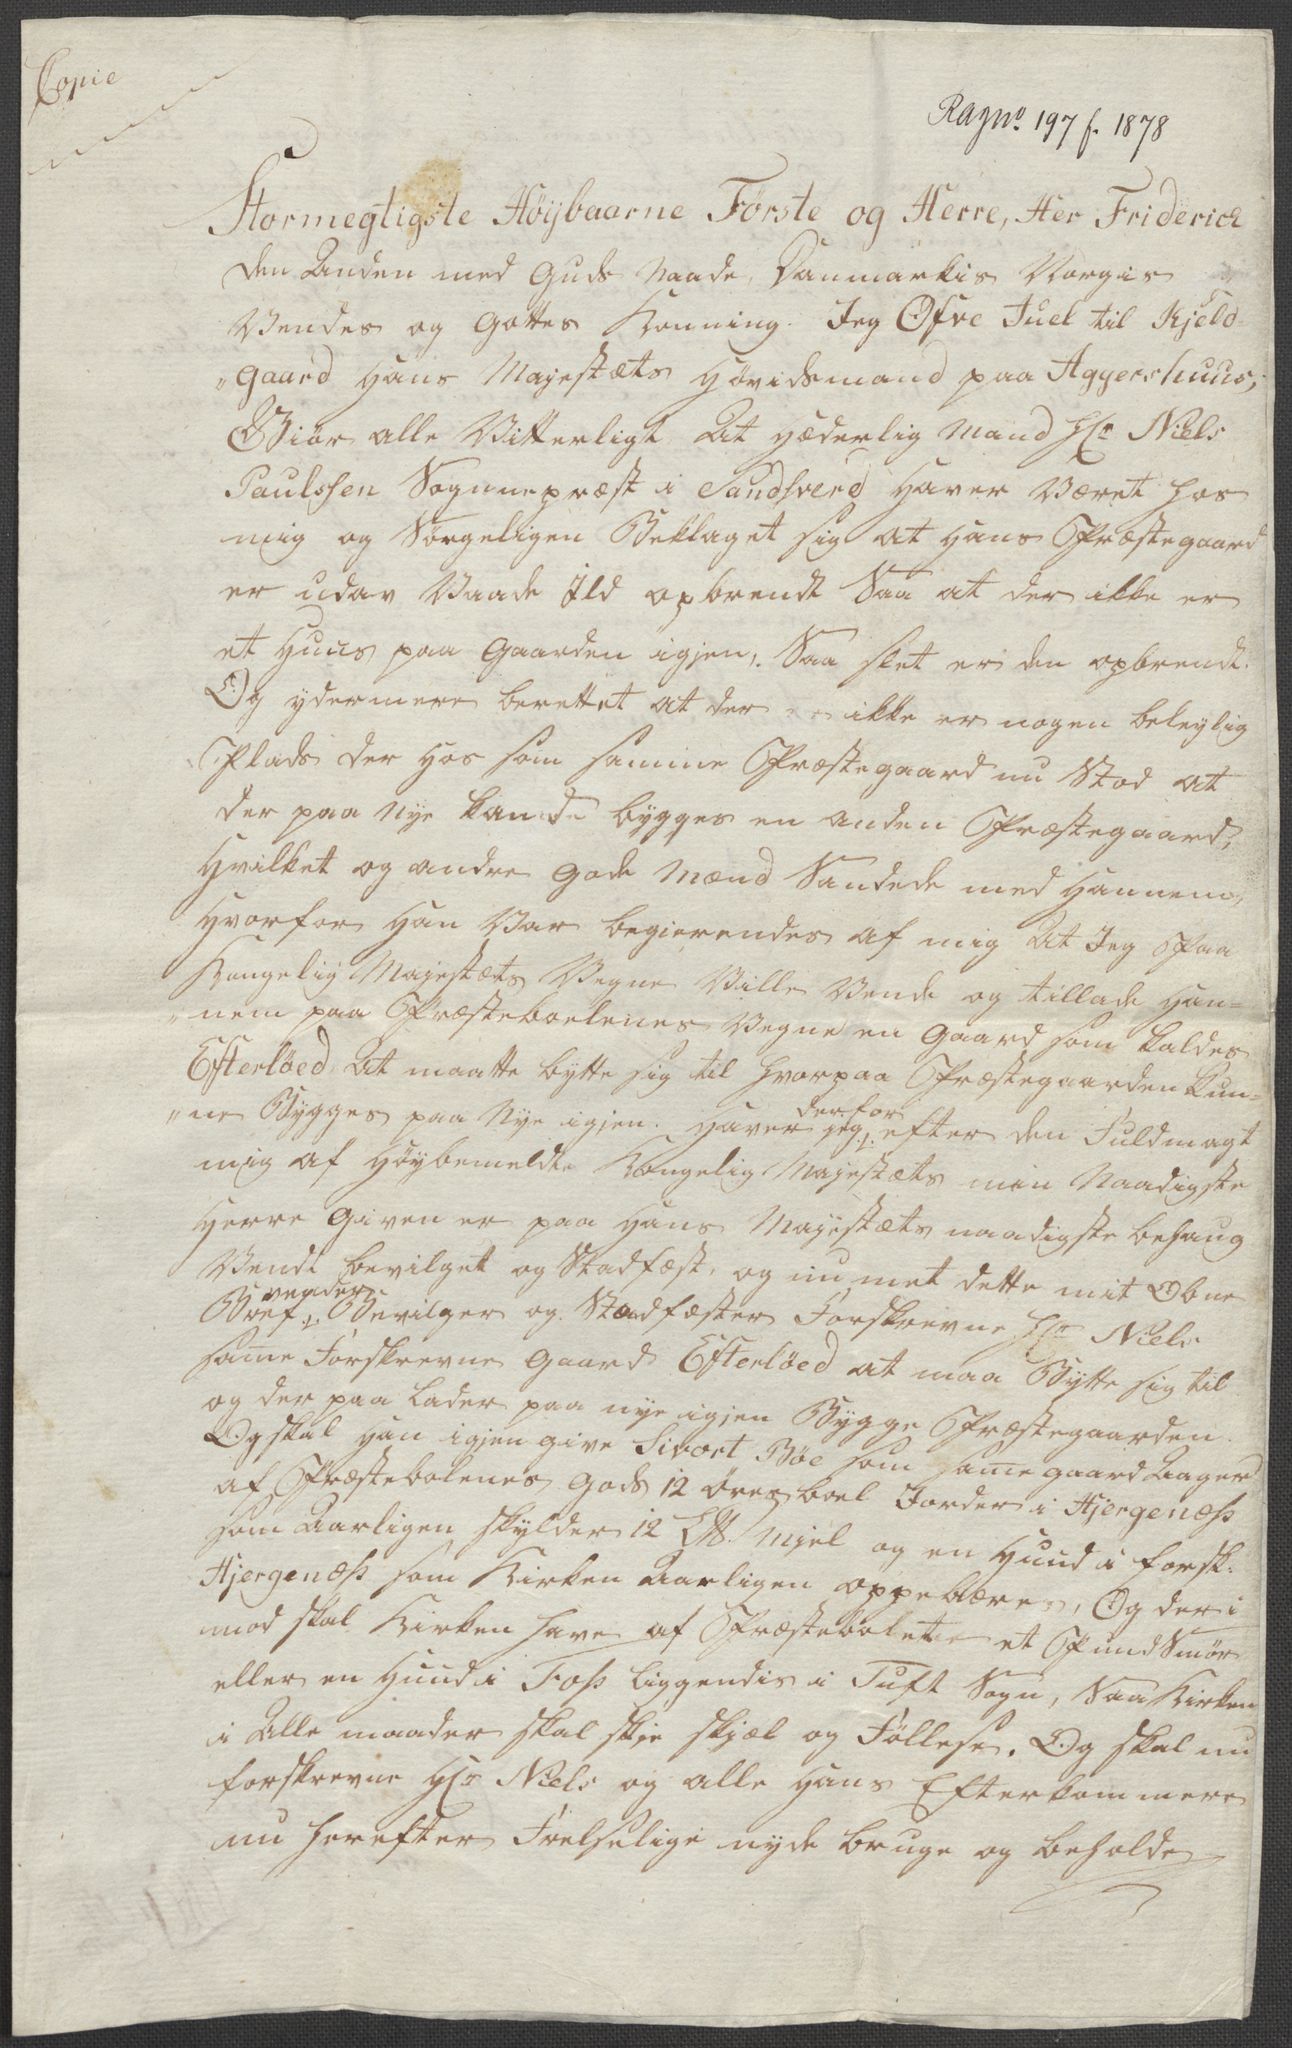 Copie
Ragno. 197 f. 1878
Stormegtigste Høÿbaarne Første og Herre, Her Friderich
den Anden med Guds Naade, Danmarkis Norgis
Vendes og Gottes Konning. Jeg Ofve Juel til Kjeld-
„gaard Hans Majestæts Høvidsmand paa Aggershuus,
Giør alle Vitterligt At hæderlig Mand Hr Niels
Paulssen Sognnepræst i Sandsverd haver Været hos
mig og Sørgeligen Beklaget sig at hans Præstegaard
er udav Vaade Ild opbrendt Saa at der ikke er
et Huus paa Gaarden igjen, Saa slet er den opbrendt.
Og ydermere berettet at der ikke er nogen beleylig
Plads der hos som samme Præstegaard nu Stod at
der paa Nye kande bÿgges en anden Præstegaard,
hvilket og andre gode Mænd Sandede med hannem,
hvorfor han Var begierendes af mig At Jeg Paa
Kongelig Majestæts Vegne Ville Vende og tillade han-
„nem paa Præstebolenes Vegne en Gaard som kaldes
Efterløed At maatte bytte sig til hvorpaa Præstegaarden kun-
„ne Bygges paa Nye igjen. Haver jeg derfor efter den Fuldmagt
mig af Høybemeldte Kongelig Majestæts min Naadigste
Herre Given er paa Hans Majestæts naadigste behaug
Vendt bevilget og Stadfæst, og nu met dette mit Obne
Bref vender Bevilger og Stadfæster Forskrevne Hr Niels
same Forskrevne Gaard Efterløed at maa Bytte sig til
og der paa Lader paa nye igjen Bygge Præstegaarden.
Og skal han igjen give Sivort Bøe som same gaard Aager
af Præstebolenes Gods 12 Øresboel Jorder i Hjergenæss
som Aarligen skylder 12 Mjel og en Huud i forsk:
Hjergenæss som Kirken Aarligen oppebærer, Og der i
mod skal Kirken have af Præstebolet et Pund Smør
eller en Huud i Foss liggendis i Tuft Sogn, Saa Kirken
i Alle maader skal skje skjæl og Föllest. Og skal nu
forskrevne Hr Niels og alle Hans Efterkommere
nu herefter Frelselige nyde bruge og beholde